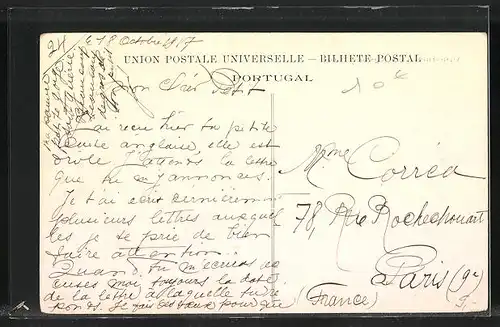 le 18 Octobre 1917
UNION POSTALE UNIVERSELLE — BILHETE POSTAL
PORTUGAL
Mon Cher Petit
J'ai reçu hier ta petite
carte anglaise, elle est
drôle J'attends la lettre
que tu m'annonces.
Je t'ai écrit dernièrement
plusieurs lettres auxquel
les je te prie de bien
faire attention.
Quand tu m'écriras ac
cuses moi toujours la date
de la lettre à laquelle tu ré
ponds. Je fais ces vœux pour que
Mme Corrêa
78, Rue Rochechouart
Paris (9e)
(France)